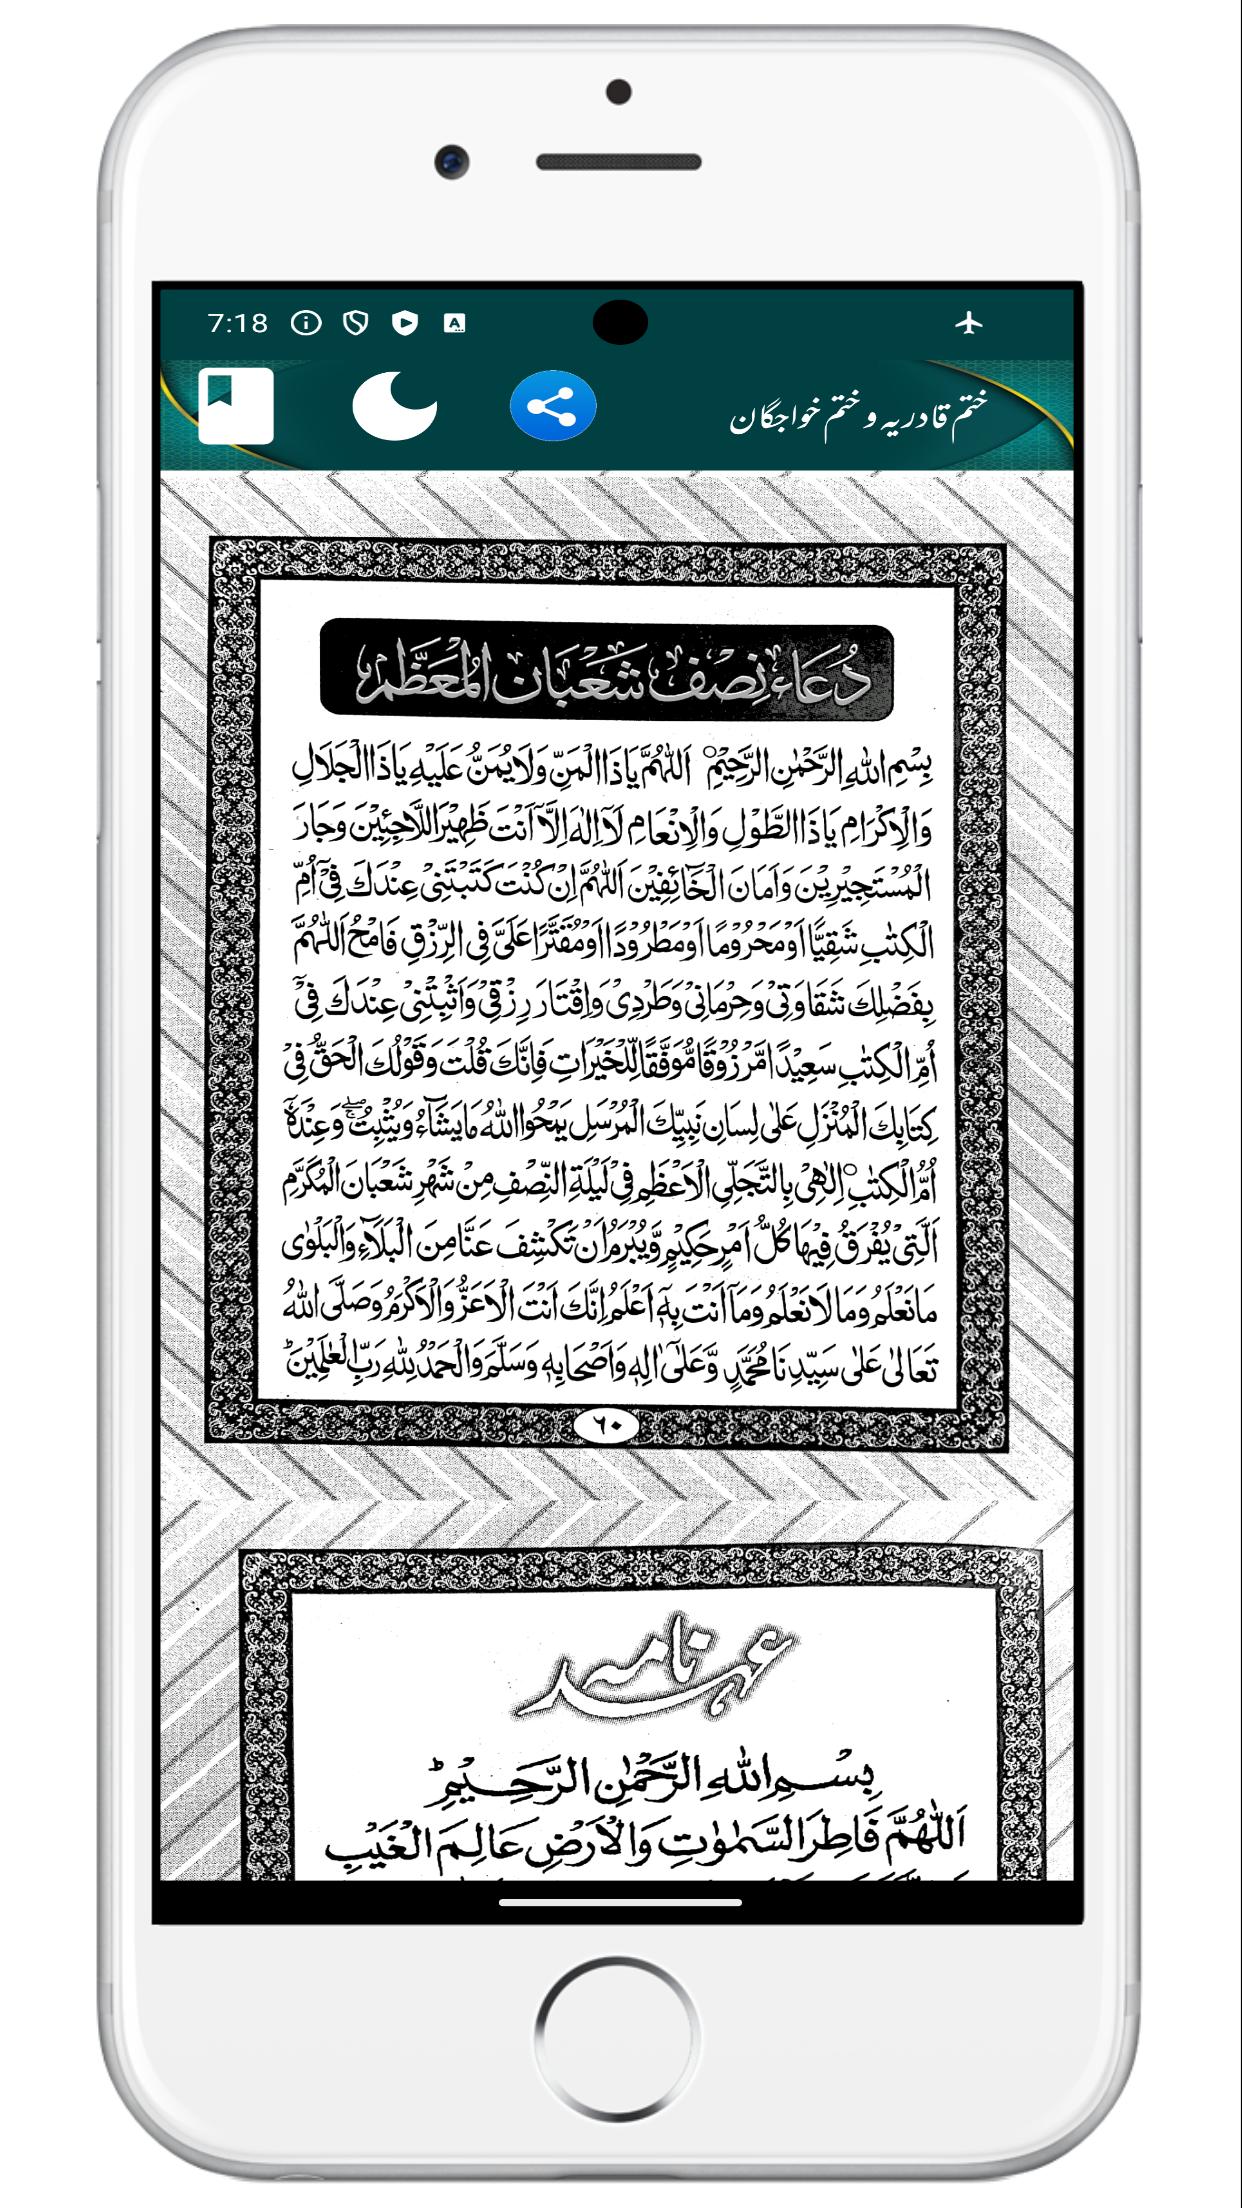 7:18
ختم قادریہ و ختم خواجگان
دُعَاءِ نِصْفِ شَعْبَانَ الْمُعَظَّمِ
بِسْمِ اللّٰهِ الرَّحْمٰنِ الرَّحِيْمِ۝ اَللّٰهُمَّ يَا ذَا الْمَنِّ وَلَا يُمَنُّ عَلَيْهِ يَا ذَا الْجَلَالِ
وَالْاِكْرَامِ يَا ذَا الطَّوْلِ وَالْاِنْعَامِ لَآ اِلٰهَ اِلَّآ اَنْتَ ظَهِيْرَ اللَّاجِئِيْنَ وَجَارَ
الْمُسْتَجِيْرِيْنَ وَاَمَانَ الْخَآئِفِيْنَ اَللّٰهُمَّ اِنْ كُنْتَ كَتَبْتَنِيْ عِنْدَكَ فِيْٓ اُمِّ
الْكِتٰبِ شَقِيًّا اَوْ مَحْرُوْمًا اَوْ مَطْرُوْدًا اَوْ مُقَتَّرًا عَلَيَّ فِى الرِّزْقِ فَامْحُ اَللّٰهُمَّ
بِفَضْلِكَ شَقَاوَتِيْ وَحِرْمَانِيْ وَطَرْدِيْ وَاقْتَارَ رِزْقِيْ وَاَثْبِتْنِيْ عِنْدَكَ فِيْٓ
اُمِّ الْكِتٰبِ سَعِيْدًا مَّرْزُوْقًا مُّوَفَّقًا لِّلْخَيْرَاتِ فَاِنَّكَ قُلْتَ وَقَوْلُكَ الْحَقُّ فِيْ
كِتَابِكَ الْمُنْزَلِ عَلٰى لِسَانِ نَبِيِّكَ الْمُرْسَلِ يَمْحُوا اللّٰهُ مَا يَشَآءُ وَيُثْبِتُ ۖ وَعِنْدَهٗٓ
اُمُّ الْكِتٰبِ۝ اِلٰهِيْ بِالتَّجَلِّي الْاَعْظَمِ فِيْ لَيْلَةِ النِّصْفِ مِنْ شَهْرِ شَعْبَانَ الْمُكَرَّمِ
اَلَّتِيْ يُفْرَقُ فِيْهَا كُلُّ اَمْرٍ حَكِيْمٍ وَّيُبْرَمُ اَنْ تَكْشِفَ عَنَّا مِنَ الْبَلَآءِ وَالْبَلْوٰى
مَا نَعْلَمُ وَمَا لَا نَعْلَمُ وَمَآ اَنْتَ بِهٖٓ اَعْلَمُ اِنَّكَ اَنْتَ الْاَعَزُّ وَالْاَكْرَمُ وَصَلَّى اللّٰهُ
تَعَالٰى عَلٰى سَيِّدِنَا مُحَمَّدٍ وَّعَلٰٓى اٰلِهٖ وَاَصْحَابِهٖ وَسَلَّمَ وَالْحَمْدُ لِلّٰهِ رَبِّ الْعٰلَمِيْنَ ؕ
٦٠
عہد نامہ
بِسْمِ اللّٰهِ الرَّحْمٰنِ الرَّحِيْمِ ؕ
اَللّٰهُمَّ فَاطِرَ السَّمٰوٰتِ وَالْاَرْضِ عَالِمَ الْغَيْبِ